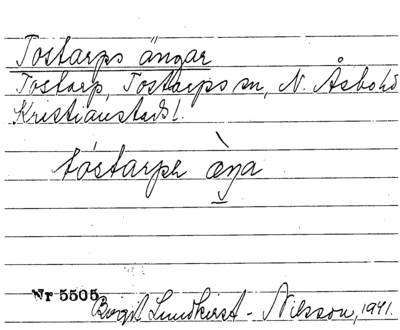 Tostarps ängar
Tostarp, Tostarps sn, N. Åsbo hd
Kristianstads l.
tóstarpa àŋa
Nr 5505
Borgit Lundkvist - Nilsson, 1941.